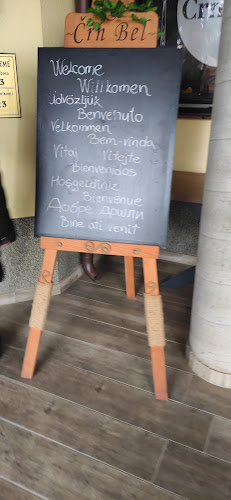 Črn Bel
Welcome
Willkomen
Jdvözljük
Benvenuto
Velkommen
Bem-vinda
Vítaj Vitejte
Bienvenidos
Hoşgeldiniz
Bienvenue
Добре дошли
Bine ati venit
3
3